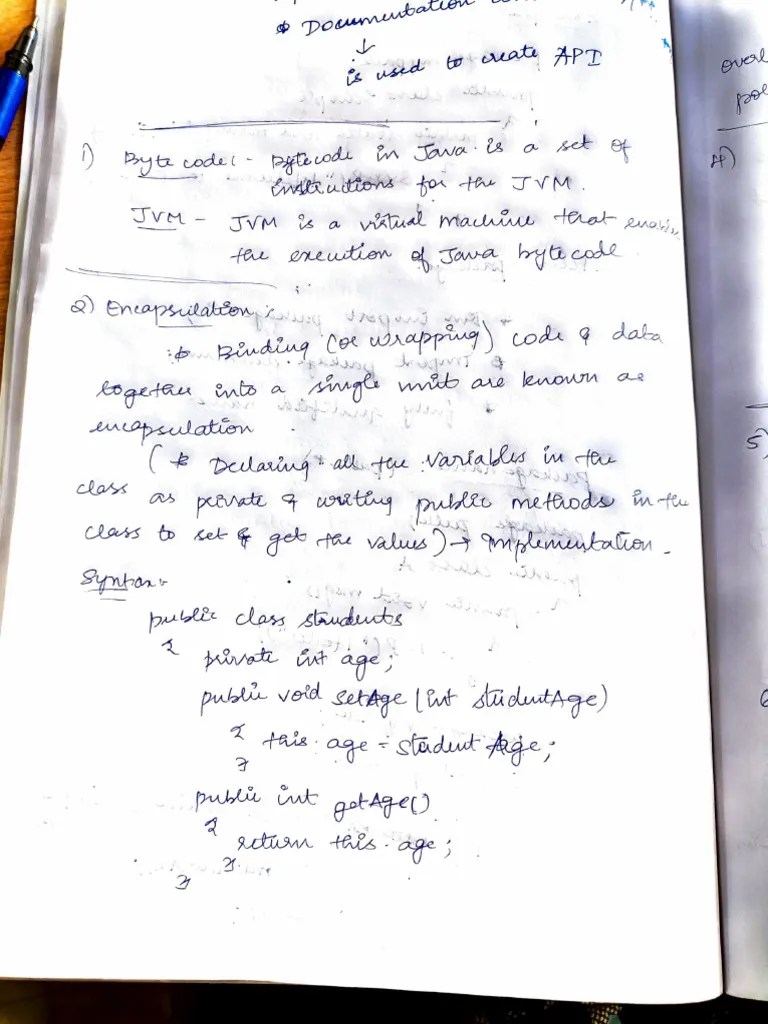 * Documentation
↓
is used to create API
1) Byte code :- Bytecode in Java is a set of
instructions for the JVM.
JVM - JVM is a virtual machine that enables
the execution of Java bytecode.
2) Encapsulation :-
* Binding (or wrapping) code & data
together into a single unit are known as
encapsulation
(* Declaring all the variables in the
class as private & writing public methods in the
class to set & get the values) → Implementation.
Syntax:-
public class students
{
private int age;
public void setAge (int studentAge)
{ this.age = studentAge;
}
public int getAge()
{
return this.age;
}
}
over
4)
5)